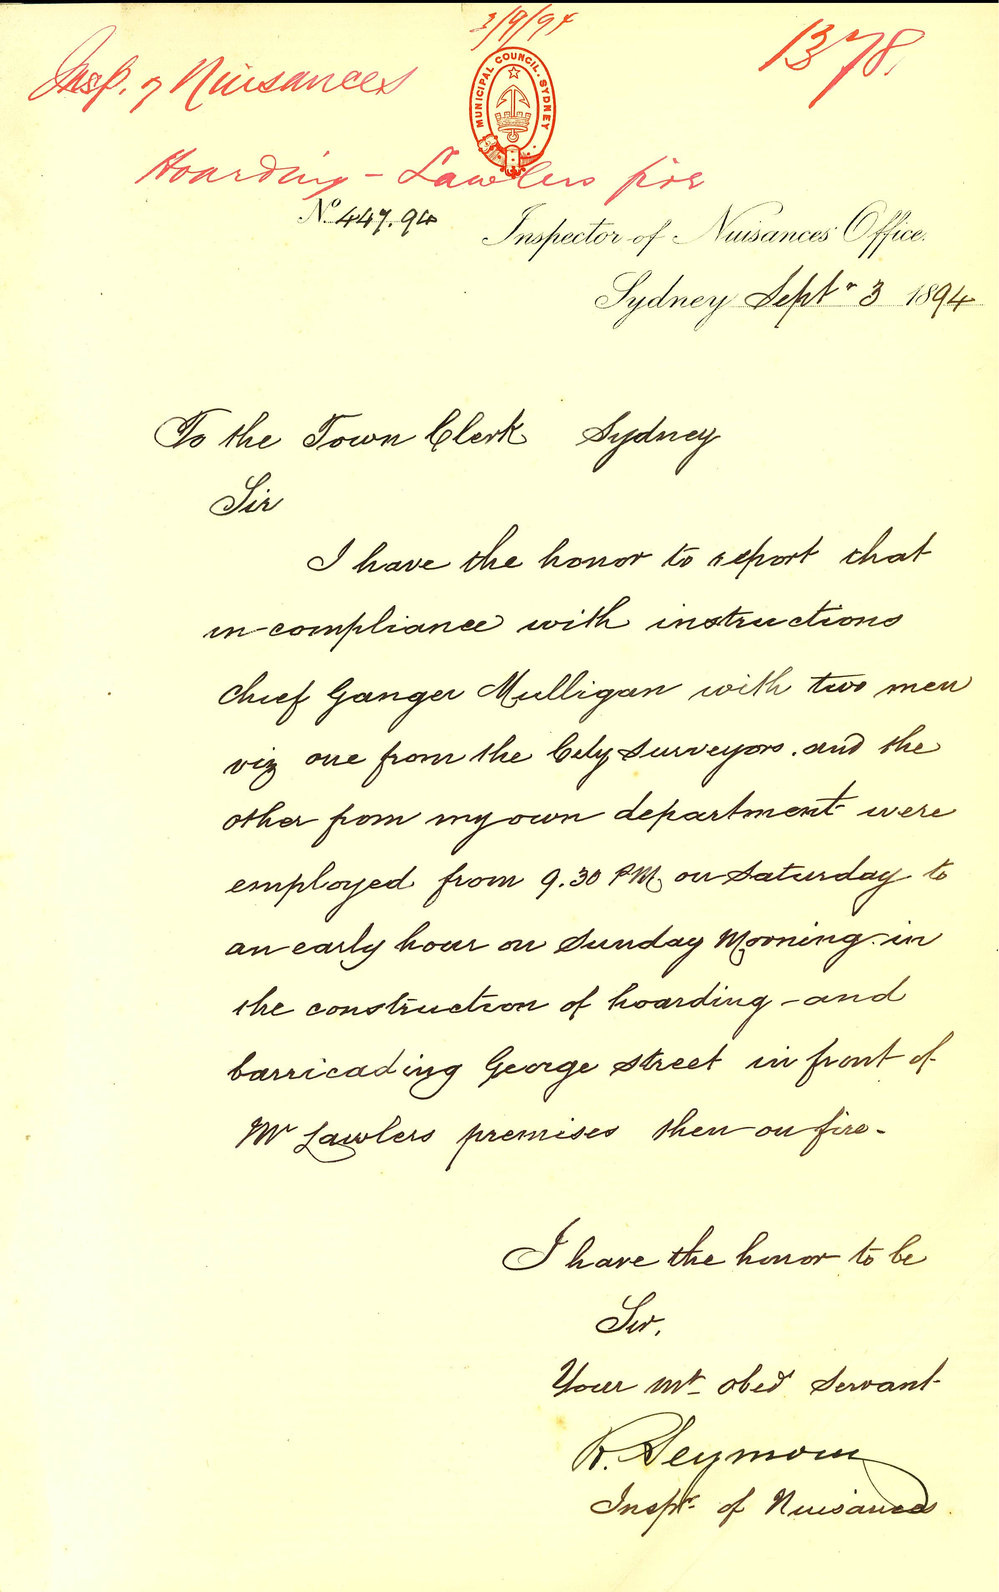 3/9/94
Insp. of Nuisances
1378.
MUNICIPAL COUNCIL. SYDNEY
Hoarding - Lawlers fire
No. 447.94
Inspector of Nuisances' Office.
Sydney Septr 3 1894
To the Town Clerk Sydney
Sir
I have the honor to report that
in compliance with instructions
Chief Ganger Mulligan with two men
viz one from the City Surveyors. and the
other from my own department were
employed from 9.30 PM. on Saturday to
an early hour on Sunday Morning in
the construction of hoarding - and
barricading George Street in front of
Mr Lawlers premises then on fire -
I have the honor to be
Sir.
Your mt obed Servant
R. Seymour
Inspr. of Nuisances